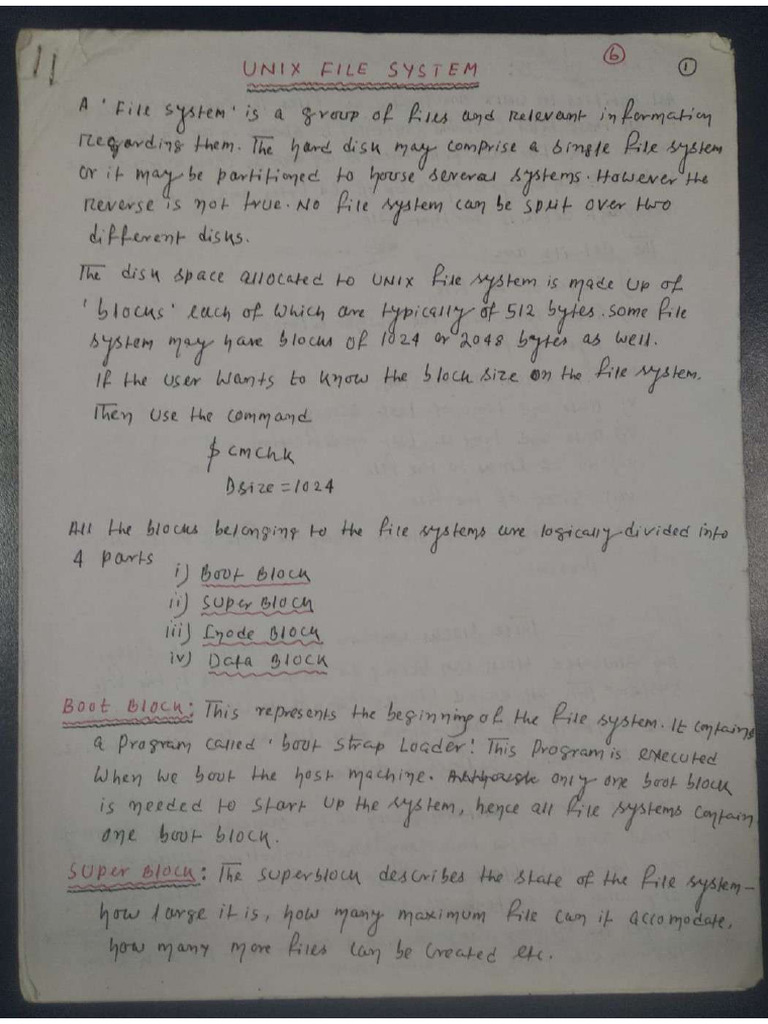 11
6
1
UNIX FILE SYSTEM
A 'File system' is a group of files and relevant information
regarding them. The hard disk may comprise a single file system
or it may be partitioned to house several systems. However the
reverse is not true. No file system can be split over two
different disks.
The disk space allocated to UNIX file system is made up of
'blocks' each of which are typically of 512 bytes. some file
system may have blocks of 1024 or 2048 bytes as well.
If the user wants to know the block size on the file system.
Then use the command
$ cmchk
Bsize = 1024
All the blocks belonging to the file systems are logically divided into
4 parts
i) Boot Block
ii) Super Block
iii) Inode Block
iv) Data Block
Boot Block: This represents the beginning of the file system. It contains
a program called 'boot strap Loader! This Program is executed
when we boot the host machine. Although only one boot block
is needed to start up the system, hence all file systems contain
one boot block.
Super Block: The superblock describes the state of the file system-
how large it is, how many maximum file can it accomodate,
how many more files can be created etc.